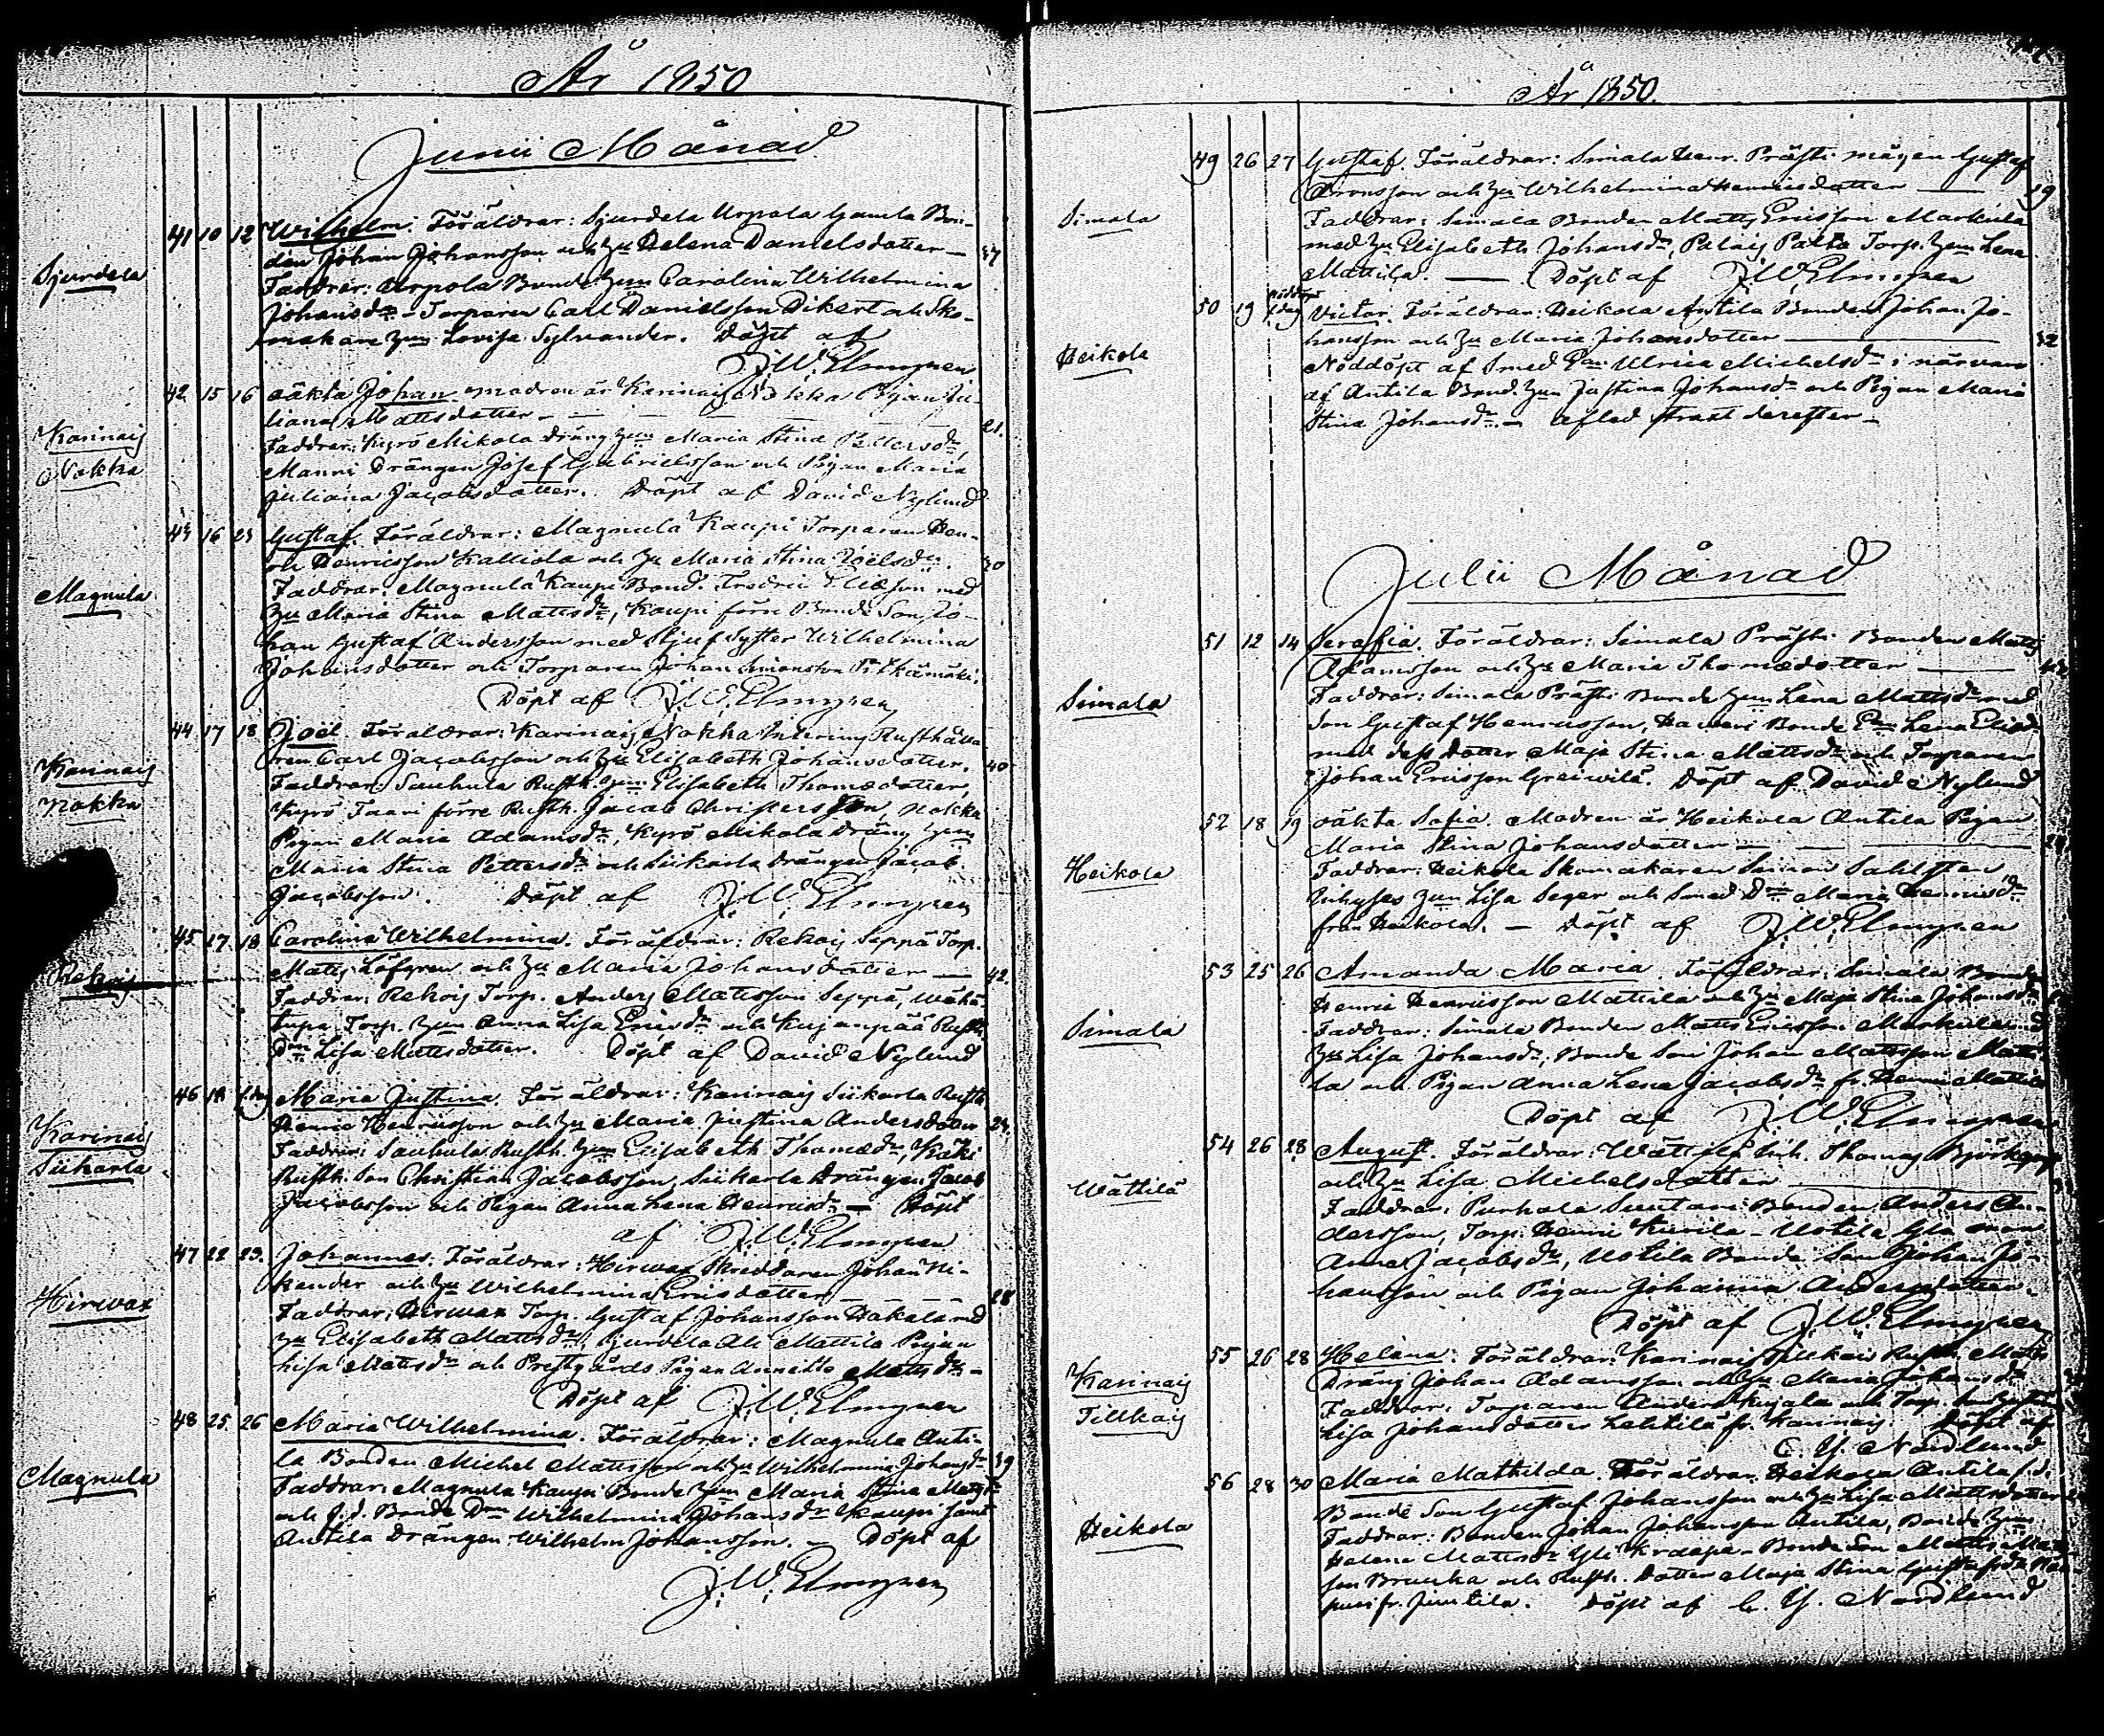 År 1850
Junii Månad
Sjurdela
41 10 12 Wilhelm. Föräldrar: Sjurdela Urpola Gamla Bon-
den Johan Johansson och hu Helena Danielsdotter — 37
Faddrar: Urpola Bonde hun Carolina Wilhelmina
Johansdr – Torparen Carl Danielsson Dikert och Sko-
makare hun Lovisa Sylvander. Döpt af
J.W. Elmgren
Karinais
Nokka
42 15 16 oäkta Johan modren är Karinais Nokka Pigan Ju-
liana Mattsdotter — 21.
Faddrar: Kyrö Mikola dräng hun Maria Stina Pettersdr,
Manni Drängen Josef Gabrielsson och Pigan Maria
Juliana Jacobsdotter. Döpt af David Nylund
Magnula
43 16 23 Gustaf. Föräldrar: Magnula Kaupi Torparen Hen-
rik Henricsson Kalliola och hu Maria Stina Joëlsdr. 30
Faddrar: Magnula Kaupi Bond. Fredric med
hu Maria Stina Mattsdr, Kaupi förre Bonde Son Jo-
han Gustaf Andersson med Stjuf Syster Wilhelmina
Johansdotter och Torparen Johan
Döpt af J.W. Elmgren
Karinais
Nokka
44 17 18 Joël. Föräldrar: Karinais Nokka Interims Rusthålla-
ren Carl Jacobsson och hu Elisabeth Johansdotter. 40
Faddrar: Sauhula Rusth. hun Elisabeth Thomædotter,
Kyrö Taari förre Rusth. Jacob Christersson, Nokka
Pigan Maria Adamsdr, Kyrö Mikola Dräng hun
Maria Stina Pettersdr och Siikarla drängen Jacob
Jacobsson. Döpt af J.W. Elmgren
Rekois
45 17 18 Carolina Wilhelmina. Föräldrar: Rekois Seppä Torp.
Matts Löfgren och hu Maria Johansdotter — 42.
Faddrar: Rekois Torp. Anders Mattsson Seppä, Wähä-
tupa Torp. hun Anna Lisa Ericsdr och Kujanpää Rusth.
Dtr Lisa Mattsdotter. Döpt af David Nylund
Karinais
Siikarla
46 18 Maria Justina. Föräldrar: Karinais Siikarla Rusth.
Henric Henricsson och hu Maria Justina Andersdotter
Faddrar: Sauhula Rusth. hun Elisabeth Thomædr, Käki
Rusth. Son Christian Jacobsson, Siikarla Drängen Jacob
Jacobsson och Pigan Anna Lena Henricsdr — Döpt
af J.W. Elmgren
Hirwax
47 22 23. Johannes. Föräldrar: Hirwax Skreddaren Johan Ni-
kander och hu Wilhelmina Ericsdotter — 28
Faddrar: Hirwax Torp. Gustaf Johansson Hakala med
hu Elisabeth Mattsdr, Sjurdela Ali Mattila Pigan
Lisa Mattsdr och Prestgårds Pigan Annette Mattsdr –
Döpt af J.W. Elmgren
Magnula
48 25. 26 Maria Wilhelmina. Föräldrar: Magnula Anti-
la Bonden Michel Mattsson och hu Wilhelmina Johansdr 39
Faddrar: Magnula Kaupi Bonde hun Maria Stina Mattsdr
och f.d. Bonde Dtr Wilhelmina Johansdr Kaupi samt
Antila Drängen Wilhelm Johansson. – Döpt af
J.W. Elmgren
År 1850.
Simala
49 26 27 Gustaf. Föräldrar: Simala Henr. Präfti mågen Gustaf
Aronsson och hu Wilhelmina Henricsdotter — 19
Faddrar: Simala Bonden Matts Ericsson Markula
med hu Elisabeth Johansdr, Palais Torp. hun Lena
Mattila. — Döpt af J.W. Elmgren
Heikola
50 19 Victor. Föräldrar: Heikola Antila Bonden Johan Jo-
hansson och hu Maria Johansdotter — 32
Nöddöpt af Smed Ulrica Michelsdr i närvaro
af Antila Bond. hun Justina Johansdr och Pigan Maria
Stina Johansdr. – Afled straxt derefter –
Julii Månad
Simala
51 12 14 Serafia. Föräldrar: Simala Präfti Bonden Matts
Adamsson och hu Maria Thomædotter —
Faddrar: Simala Präfti Bonde hun Lena Mattsdr med
Son Gustaf Henricsson, Bonde Lena
med dess dotter Maja Stina Mattsdr och Torparen
Johan Ericsson Greiwilä. Döpt af David Nylund
Heikola
52 18 19 oäkta Sofia. Modren är Heikola Antila Pigan
Maria Stina Johansdotter —
Faddrar: Heikola Skomakaren Simon Sahlsten
hun Lisa Seger och Smed Dtr Maria Henricsdr
från Heikola. – Döpt af J.W. Elmgren
Simala
53 25 26 Amanda Maria. Föräldrar: Simala Bonden
Henric Henricsson Mattila och hu Maja Stina Johansdr
Faddrar: Simala Bonden Matts Ericsson Markula med
hu Lisa Johansdr, Bonde Son Johan Mattsson Matti-
la och Pigan Anna Lena Jacobsdr fr.
Döpt af J.W. Elmgren
Wättilä
54 26 28 August. Föräldrar: Wättilä Thomas Björkqvist
och hu Lisa Michelsdotter —
Faddrar: Purhala Suutari Bonden Anders An-
dersson, Torp. Henric Uotila
Anna Jacobsdr, Uotila Bonde Son Johan Jo-
hansson och Pigan Johanna Andersdotter.
Döpt af J.W. Elmgren
Karinais
Tillkais
55 26 28 Helena. Föräldrar: Karinais Tillkais Rusth. Matts
Dräng Johan Adamsson och hu Maria Johansdr
Faddrar: Torparen Anders Kujala och Torp.
Lisa Johansdotter Lehtilä fr. Karinais. Döpt af
C. G. Nordlund
Heikola
56 28 30 Maria Mathilda. Föräldrar: Heikola Antila f.d.
Bonde Son Gustaf Johansson och hu Lisa Mattsdotter
Faddrar: Bonden Johan Johansson Antila, Bonde hun
Helena Mattsdr Yli Kraapa – Bonde Son Matts Matts-
son Bruuka och Rusth. Dotter Maja Stina Gustafsdr
fr. Juntila. Döpt af C. G. Nordlund